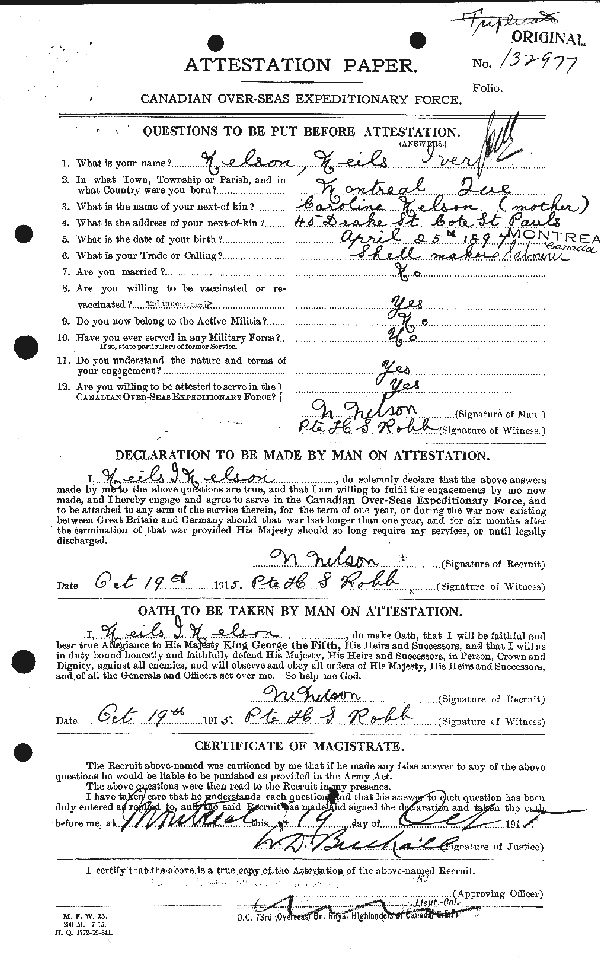 Triplicate
ORIGINAL
No. 132977
Folio.
ATTESTATION PAPER.
CANADIAN OVER-SEAS EXPEDITIONARY FORCE.
QUESTIONS TO BE PUT BEFORE ATTESTATION.
(ANSWERS.)
1. What is your name? Nelson, Neils Iver
2. In what Town, Township or Parish, and in what Country were you born? Montreal Que
3. What is the name of your next-of-kin? Caroline Nelson (mother)
4. What is the address of your next-of-kin? 45 Drake St Cote St Pauls
MONTREAL
Canada
5. What is the date of your birth? April 25th 1897
6. What is your Trade or Calling? Shell maker
7. Are you married? No
8. Are you willing to be vaccinated or re-vaccinated? Yes
9. Do you now belong to the Active Militia? No
10. Have you ever served in any Military Force? No
If so, state particulars of former Service.
11. Do you understand the nature and terms of your engagement? Yes
12. Are you willing to be attested to serve in the CANADIAN OVER-SEAS EXPEDITIONARY FORCE? Yes
N Nelson (Signature of Man.)
Pte H S Robb (Signature of Witness)
DECLARATION TO BE MADE BY MAN ON ATTESTATION.
I, Neils I Nelson, do solemnly declare that the above answers
made by me to the above questions are true, and that I am willing to fulfil the engagements by me now
made, and I hereby engage and agree to serve in the Canadian Over-Seas Expeditionary Force, and
to be attached to any arm of the service therein, for the term of one year, or during the war now existing
between Great Britain and Germany should that war last longer than one year, and for six months after
the termination of that war provided His Majesty should so long require my services, or until legally
discharged.
N Nelson (Signature of Recruit)
Date Oct 19th 1915. Pte H S Robb (Signature of Witness)
OATH TO BE TAKEN BY MAN ON ATTESTATION.
I, Neils I Nelson, do make Oath, that I will be faithful and
bear true Allegiance to His Majesty King George the Fifth, His Heirs and Successors, and that I will as
in duty bound honestly and faithfully defend His Majesty, His Heirs and Successors, in Person, Crown and
Dignity, against all enemies, and will observe and obey all orders of His Majesty, His Heirs and Successors,
and of all the Generals and Officers set over me. So help me God.
N Nelson (Signature of Recruit)
Date Oct 19th 1915. Pte H S Robb (Signature of Witness)
CERTIFICATE OF MAGISTRATE.
The Recruit above-named was cautioned by me that if he made any false answer to any of the above
questions he would be liable to be punished as provided in the Army Act.
The above questions were then read to the Recruit in my presence.
I have taken care that he understands each question, and that his answer to each question has been
duly entered as replied to, and the said Recruit has made and signed the declaration and taken the oath
before me, at Montreal this 19 day of Oct 1915
(Signature of Justice)
I certify that the above is a true copy of the Attestation of the above-named Recruit.
(Approving Officer)
Lieut-Col.
O.C. 73rd (Overseas) Bn. Royal Highlanders of Canada
M. F. W. 23.
H. Q. 1772-39-841.